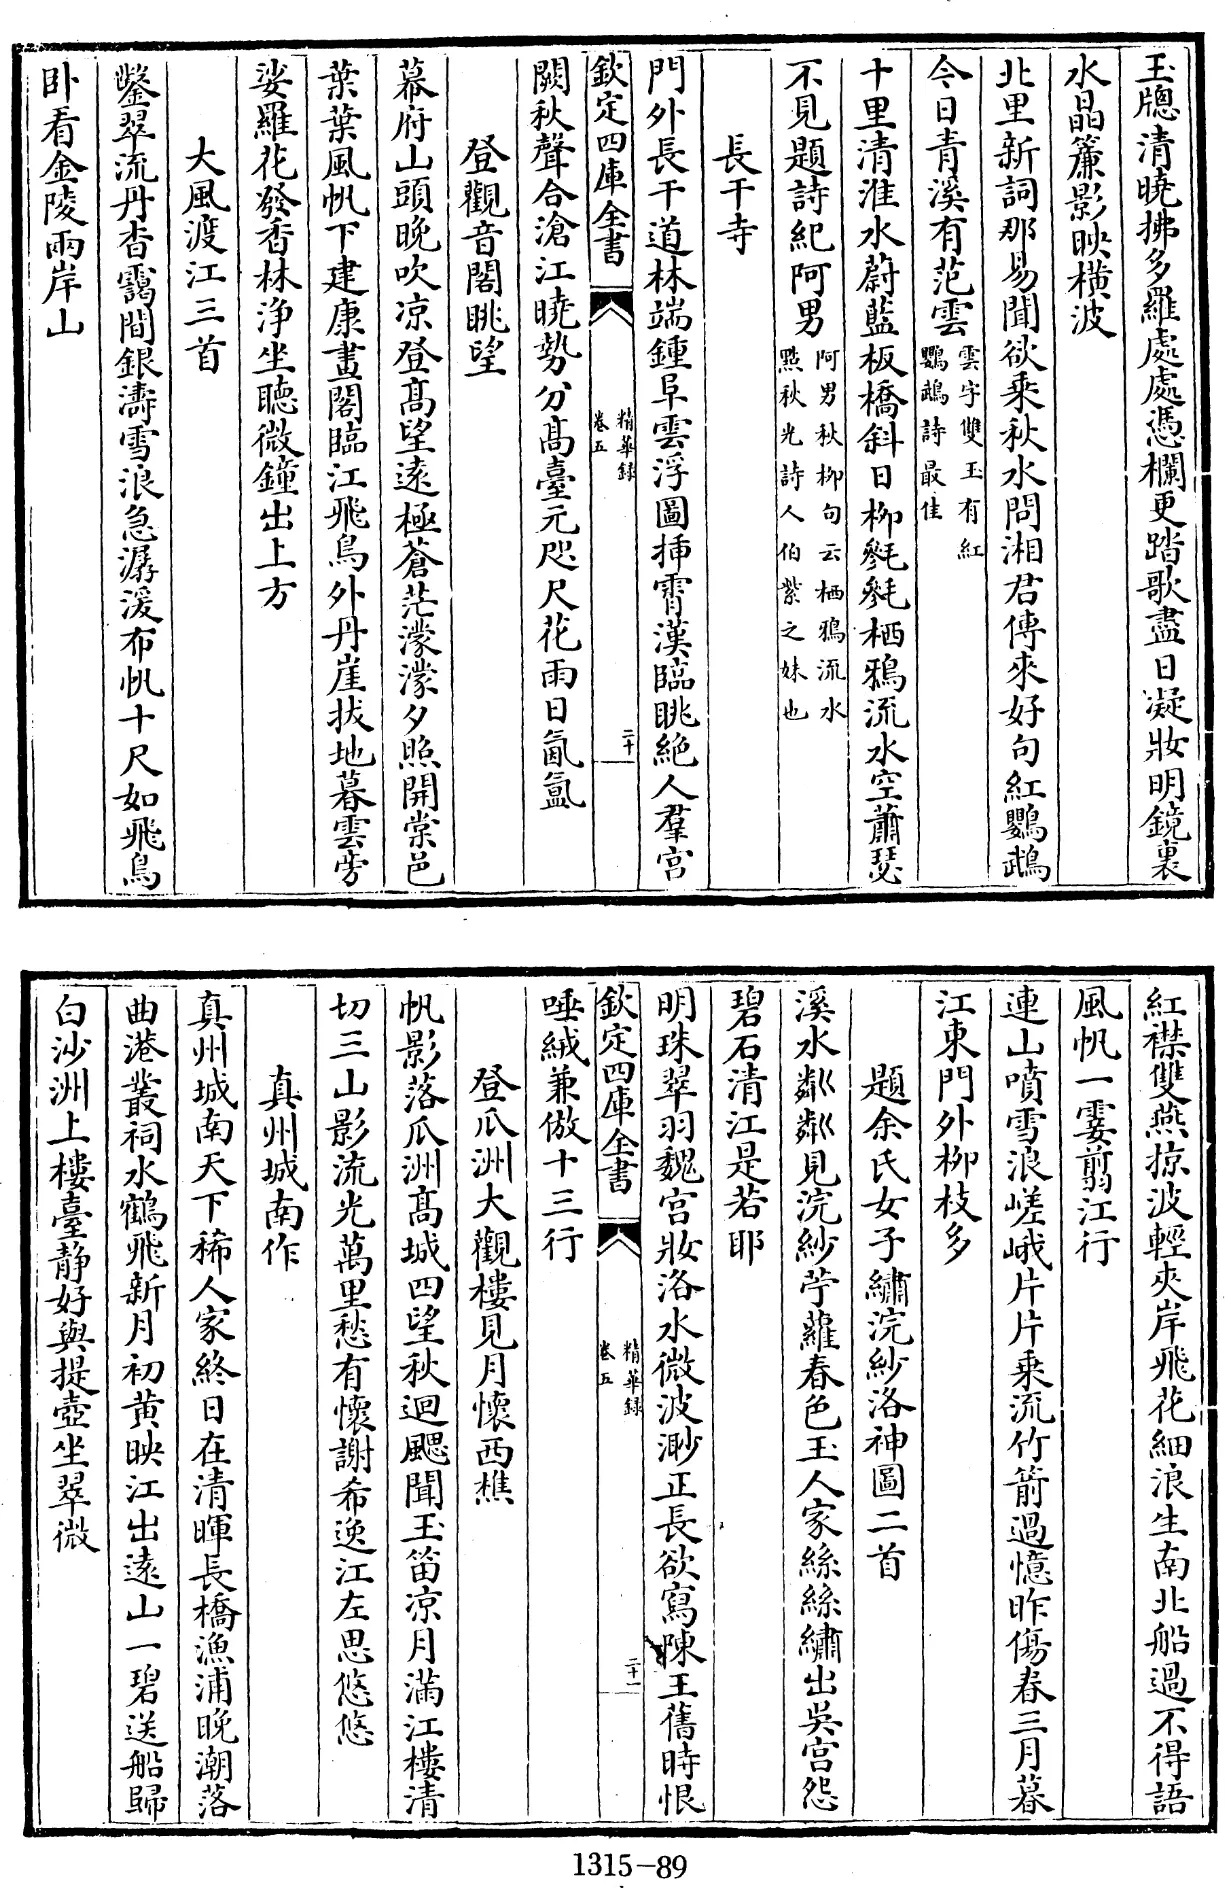 玉牕清曉拂多羅處處憑欄更踏歌盡日凝妝明鏡裏
水晶簾影映橫波
北里新詞那易聞欲乘秋水問湘君傳來好句紅鸚鵡
今日青溪有范雲雲字雙玉有紅
鸚鵡詩最佳
十里清淮水蔚藍板橋斜日柳毿毿栖鴉流水空蕭瑟
不見題詩紀阿男阿男秋柳句云栖鴉流水
㸃秋光詩人伯紫之妹也
長干寺
門外長干道林端鍾阜雲浮圖挿霄漢臨眺絶人羣宫
欽定四庫全書
精華録
卷五
二十
闕秋聲合滄江曉勢分髙臺元咫尺花雨日氤氲
登觀音閣眺望
幕府山頭晚吹凉登髙望逺極蒼茫濛濛夕照開棠邑
葉葉風帆下建康畫閣臨江飛鳥外丹崖拔地暮雲旁
娑羅花發香林淨坐聽微鐘出上方
大風渡江三首
鑿翠流丹杳靄間銀濤雪浪急潺湲布帆十尺如飛鳥
卧看金陵兩岸山
紅襟雙燕掠波輕夾岸飛花細浪生南北船過不得語
風帆一霎剪江行
連山噴雪浪嵯峨片片乘流竹箭過憶昨傷春三月暮
江東門外柳枝多
題余氏女子繡浣紗洛神圖二首
溪水粼粼見浣紗苧蘿春色玉人家絲絲繡出吳宫怨
碧石清江是若耶
明珠翠羽魏宫妝洛水微波渺正長欲寫陳王舊時恨
欽定四庫全書
精華録
卷五
二十一
唾絨兼倣十三行
登瓜洲大觀樓見月懷西樵
帆影落瓜洲髙城四望秋迴颸聞玉笛凉月滿江樓清
切三山影流光萬里愁有懷謝希逸江左思悠悠
真州城南作
真州城南天下稀人家終日在清暉長橋漁浦晚潮落
曲港叢祠水鶴飛新月初黄映江出逺山一碧送船歸
白沙洲上樓臺靜好與提壺坐翠微
1315-89